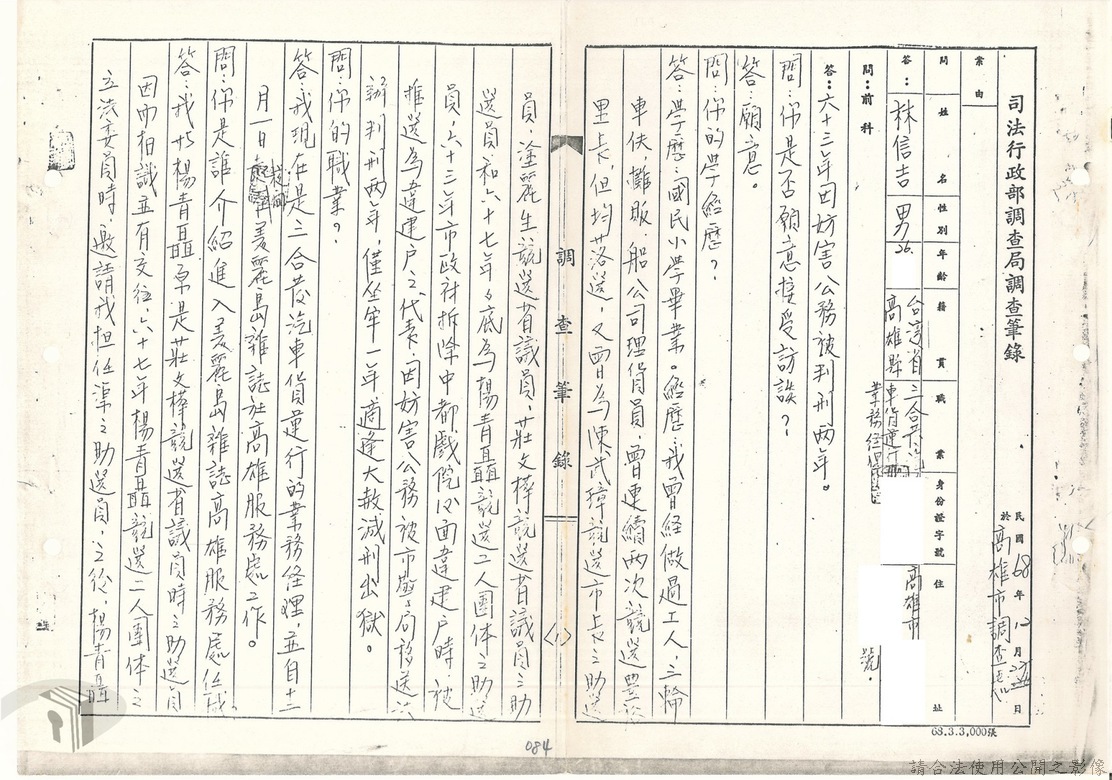 司法行政部調查局調查筆錄
民國68年12月 日
於高雄市調查處
案由
問 姓名 性別 年齡 籍貫 職業 身份證字號 住址
答：林信吉 男 36. 台灣省高雄縣 三合 汽車貨運行業務經理 高雄市 號.
問：前科
答：六十三年因妨害公務被判刑兩年。
問：你是否願意接受訪談？
答：願意。
問：你的學經歷？
答：學歷：國民小學畢業。經歷：我曾經做過工人，三輪
車伕，攤販，船公司理貨員，曾連續兩次競選里
里長但均落選，又曾為陳武璋競選市長之助選
調查筆錄
〈1〉
員，塗麗生競選省議員，莊文樺競選省議員之助
選員，和六十七年年底為楊青矗競選工人團体之助選
員，六十三年市政府拆除中都戲院 面違建戶時，被
推選為違建戶之代表，因妨害公務被市警局移送法
辦判刑兩年，僅坐牢一年適逢大赦減刑出獄。
問：你的職業？
答：我現在是三合發汽車貨運行的業務經理，並自十二
月一日 美麗島雜誌社高雄服務處工作。
問：你是誰介紹進入美麗島雜誌高雄服務處任職
答：我與楊青矗原是莊文樺競選省議員時之助選員
因而相識並有交往，六十七年楊青矗競選工人團体之
立法委員時，邀請我担任渠之助選員，之後，楊青矗
084
68.3.3,000張
請合法使用公開之影像